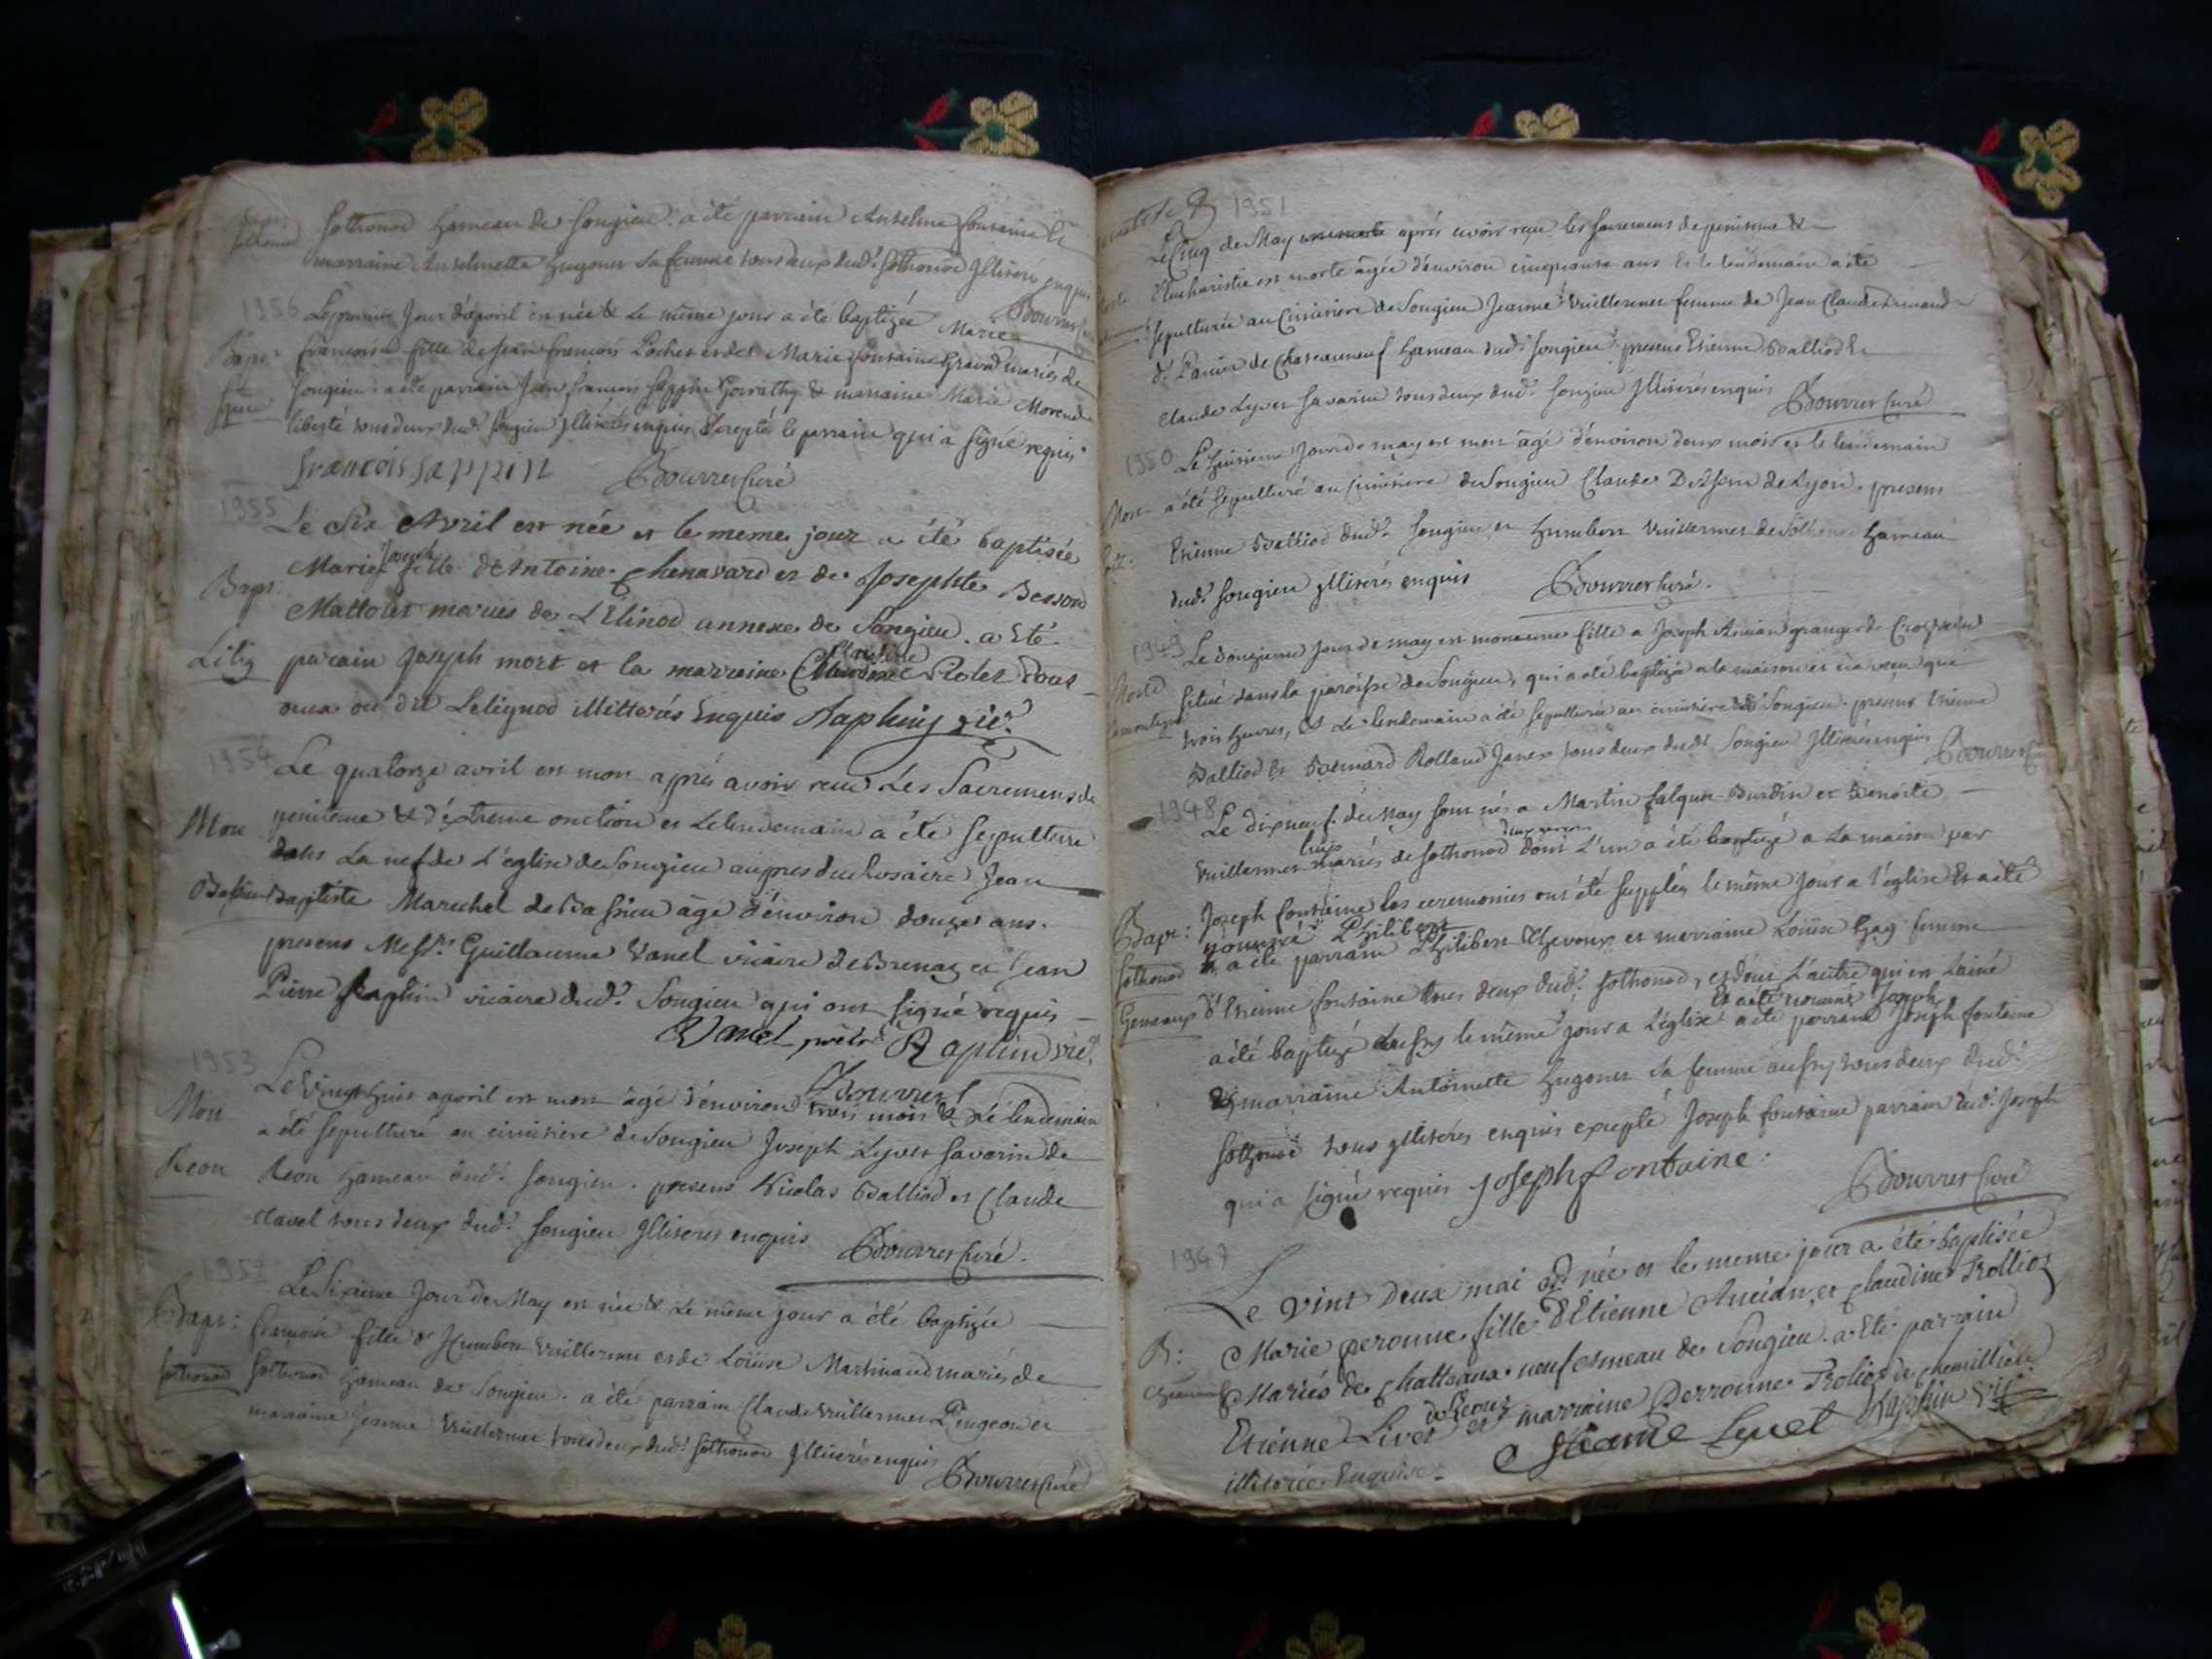 Sothonod hameau de Songieu. a été parrain Anselme fontaine Et
marraine Anselmette hugonet sa femme tous deux dud.t Sothonod Illiteres enquis
Bourret Curé
1956
Bapt:
Le premier Jour d'apvril est née & Le même jour a été baptizée Marie
françoise fille de Jean francois Pochet et de Marie fontaine Gravat mariés de
Songieu. a été parrain Jean francois Sappin & marraine Marie Morend
liberté tous deux dud.t Songieu Illiterés enquis Excepté le parrain qui a signé requis.
francois sappin Bourret Curé
1955
Le Six Avril est née et le meme jour a été baptisée
Bapt.
Marie Joseph fille de Antoine Chenavard et de Josephte Besson
Mattolet mariés de L'Elinod annexe de Songieu. a Eté
parain Joseph mort et la marraine Claudine Prolet tous
deux du dit Lelignod illitterés Enquis Raphin vic.e
1954
Le quatorze avril est mort aprés avoir reçu Les Sacremens de
Mort
penitence & d'éxtreme onction et Le lendemain a été sepulturé
dans La nef de L'église de Songieu aupres du Rosaire Jean
Bassieu
Baptiste Marechal de Bassieu âgé d'environ douze ans.
presens Mess.rs Guillaume Vanel vicaire de Brenaz et Jean
Pierre Raphin vicaire dud.t Songieu qui ont signé requis
Vanel prêtre Raphin vic.e
Bourret
1953
Mort
Le Vingt huit apvril est mort âgé d'environ trois mois & Le lendemain
a été sepulturé au cimitiere de Songieu Joseph Lyvet Savarin de
Reou
Reou hameau dud.t Songieu. presens Nicolas Balliod et Claude
Clavel tous deux dud.t Songieu Illiterés enquis Bourret Curé.
1952
Le Sixieme Jour de May est née & Le même jour a été baptizée
Bapt:
françoise fille d'Humbert Vuillermet et de Loüise Martinand mariés de
Sothonod
Sothonod hameau de Songieu. a été parrain Claude Vuillermet Pingeon et
marraine Jeanne Vuillermet tous deux dud.t Sothonod Illiterés enquis
Bourret Curé
1951
Le Cinq de May aprés avoir reçu les Sacremens de penitence &
Eucharistie est morte âgée d'environ cinquante ans Et le lendemain a été
sepulturée au Cimitiere de Songieu Jeanne Vuillermet femme de Jean Claude
de Chateauneuf hameau dud.t Songieu. presens Etienne Balliod Et
Claude Lyvet Savarin tous deux dud.t Songieu Illiterés enquis Bourret Curé
1950
Le huitieme Jour de may est mort âgé d'environ deux mois et le lendemain
Mort
a été sepulturé au cimitiere de Songieu Claude de Lyon. presens
Etienne Balliod dud.t Songieu et humbert Vuillermet de Sothonod hameau
dud.t Songieu Illiterés enquis Bourret Curé.
1949
Le douzieme Jour de may est morte une fille a Joseph Ancian granger de
Morte
situé dans la paroisse de Songieu, qui a été baptizé a la maison et n'a vecu que
trois heures, Et Le lendemain a été sepulturée au cimitiere de Songieu. presens Etienne
Balliod Et Bernard Rolland Janet tous deux dud.t Songieu Illiterés enquis Bourret Curé
1948
Le dixneuf de May sont nés a Martin falquet Burdin et Benoite
Vuillermet mariés de Sothonod deux garçons dont L'un a été baptizé a La maison par
Bapt:
Joseph fontaine les ceremonies ont été supplées le même Jour a l'église Et a été
nommé Philibert
Sothonod
a été parrain Philibert Thevoux et marraine Loüise hag femme
Gemeaux
d'Etienne fontaine tous deux dud.t Sothonod, et dont L'autre qui est L'ainé
Et a été nommé Joseph
a été baptizé aussy le même jour a L'église a été parrain Joseph fontaine
Et marraine Antoinette hugonet sa femme aussy tous deux dud.t
Sothonod tous Illiterés enquis excepté Joseph fontaine parrain dud.t Joseph
qui a signé requis joseph fontaine.
Bourret Curé
1947
Le vint deux mai est née et le meme jour a été baptisée
B:
Marie peronne fille d'Etienne Ancian et claudine Trolliot
Mariés de Chatteaux neuf hameau de Songieu. a Eté parrain
Etienne Livet et marraine Perronne Troliot de chemillieu
illiterée Enquise. Etienne Lyvet Raphin vic.e